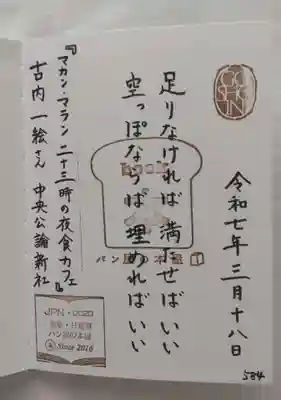 令和七年三月十八日
足りなければ 満たせばいい
空っぽならば 埋めればいい
『マカン・マラン 二十三時の夜食カフェ』
古内一絵さん 中央公論新社
book
パン屋の本屋
JPN・0023
パン屋の本屋
Since 2016
584